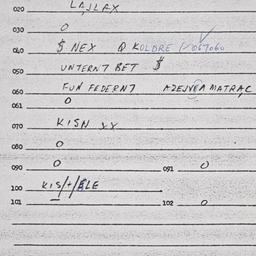 020 LAJLAX
030 O
040 $ NEX Q KOLDRE
050 UNTERNT BET $
060 FUN FEDERNT MATRAC
061 O
070 KISN XX
080 O
090 O 091 O
100 KIS/+/ELE
101 — 102 O